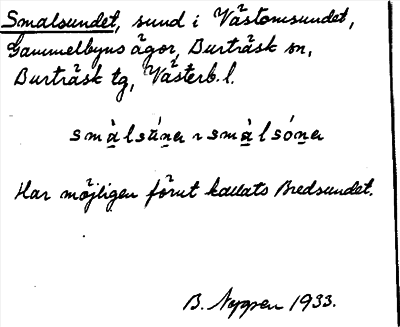 Smalsundet, sund i Västomsundet,
Gammelbyns ägor, Burträsk sn,
Burträsk tg, Västerb. l.
smàlsúnər ~ smàlsónər
Har möjligen förut kallats Bredsundet.
B. Nygren 1933.